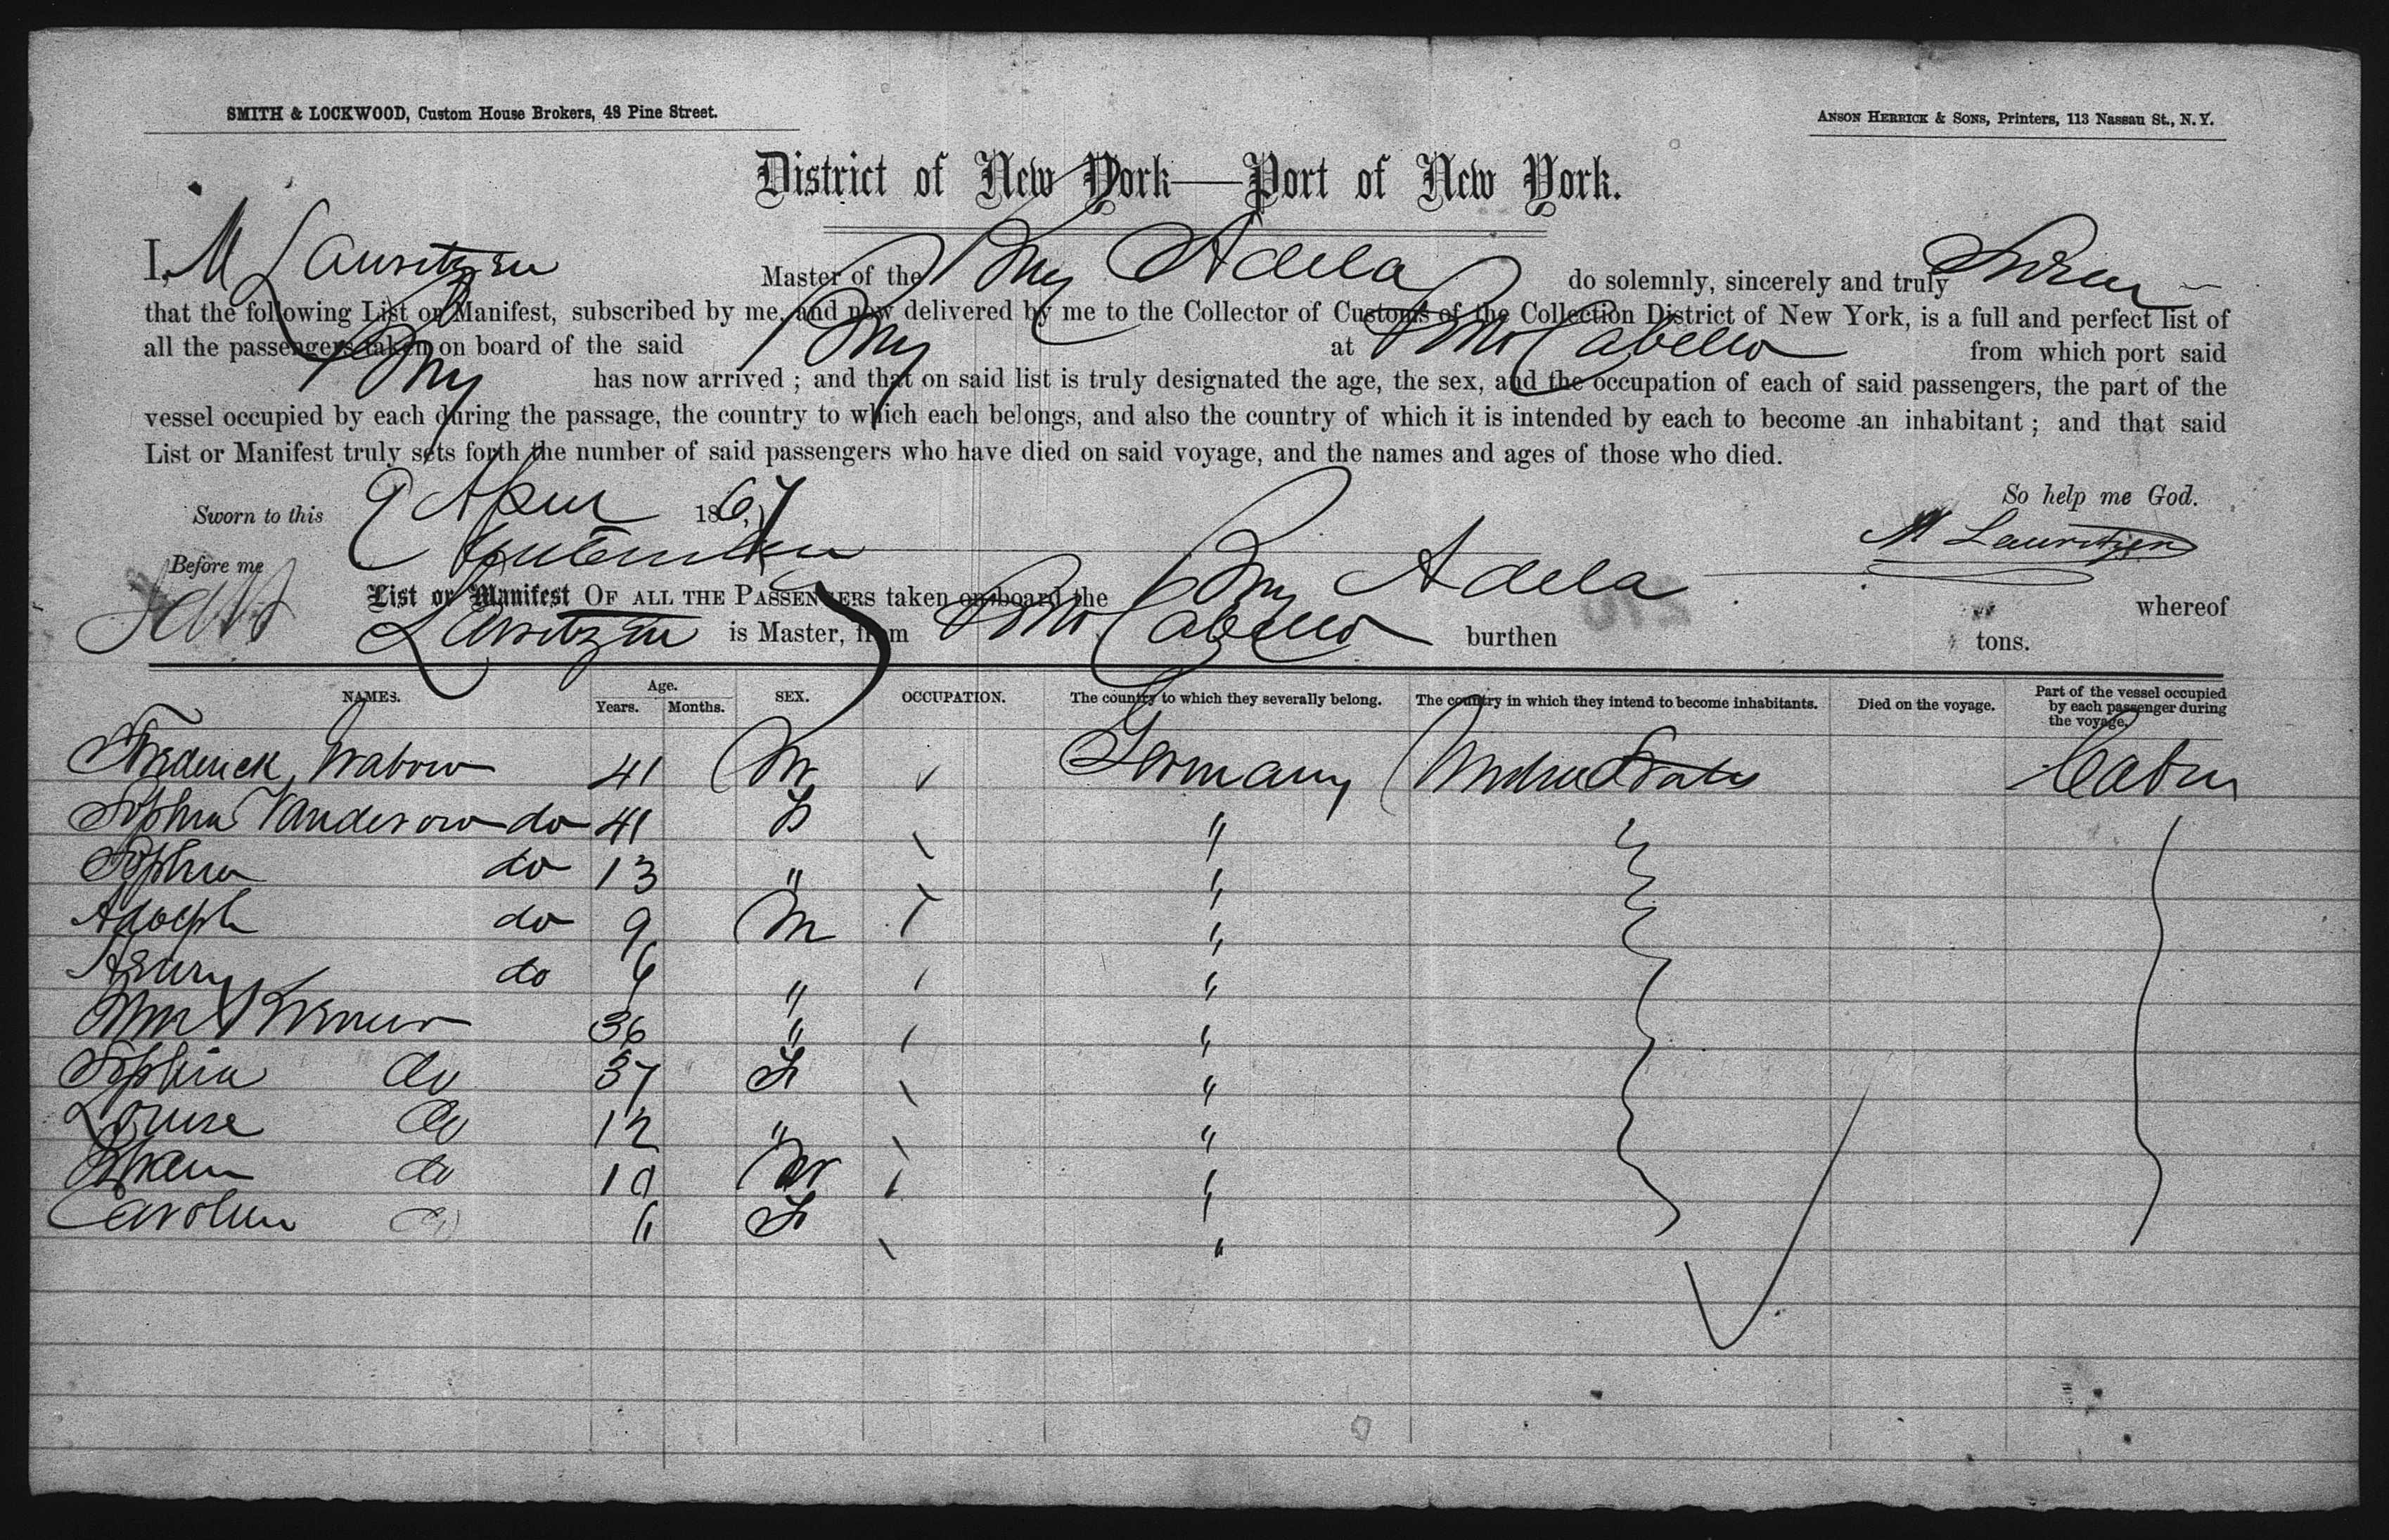 SMITH & LOCKWOOD, Custom House Brokers, 48 Pine Street.
ANSON HERRICK & SONS, Printers, 113 Nassau St., N. Y.
District of New York—Port of New York.
I, M Lauritzen Master of the Adela do solemnly, sincerely and truly
that the following List or Manifest, subscribed by me, and now delivered by me to the Collector of Customs of the Collection District of New York, is a full and perfect list of
all the passengers taken on board of the said at Cabello from which port said
has now arrived ; and that on said list is truly designated the age, the sex, and the occupation of each of said passengers, the part of the
vessel occupied by each during the passage, the country to which each belongs, and also the country of which it is intended by each to become an inhabitant ; and that said
List or Manifest truly sets forth the number of said passengers who have died on said voyage, and the names and ages of those who died.
So help me God.
Sworn to this 9 April 1867
M Lauritzen
Before me
List or Manifest OF ALL THE PASSENGERS taken on board the Adela whereof
Lauritzen is Master, from Cabello burthen tons.
NAMES. Age. Years. Months. SEX. OCCUPATION. The country to which they severally belong. The country in which they intend to become inhabitants. Died on the voyage. Part of the vessel occupied by each passenger during the voyage.
Frederick 41 M Germany United States Cabin
Sophia do 41 F "
Sophia do 13 " "
Adolph do 9 M "
Henry do 6 " "
Wm 36 " "
Sophia do 37 F "
Louise do 12 " "
do 10 M "
do F "